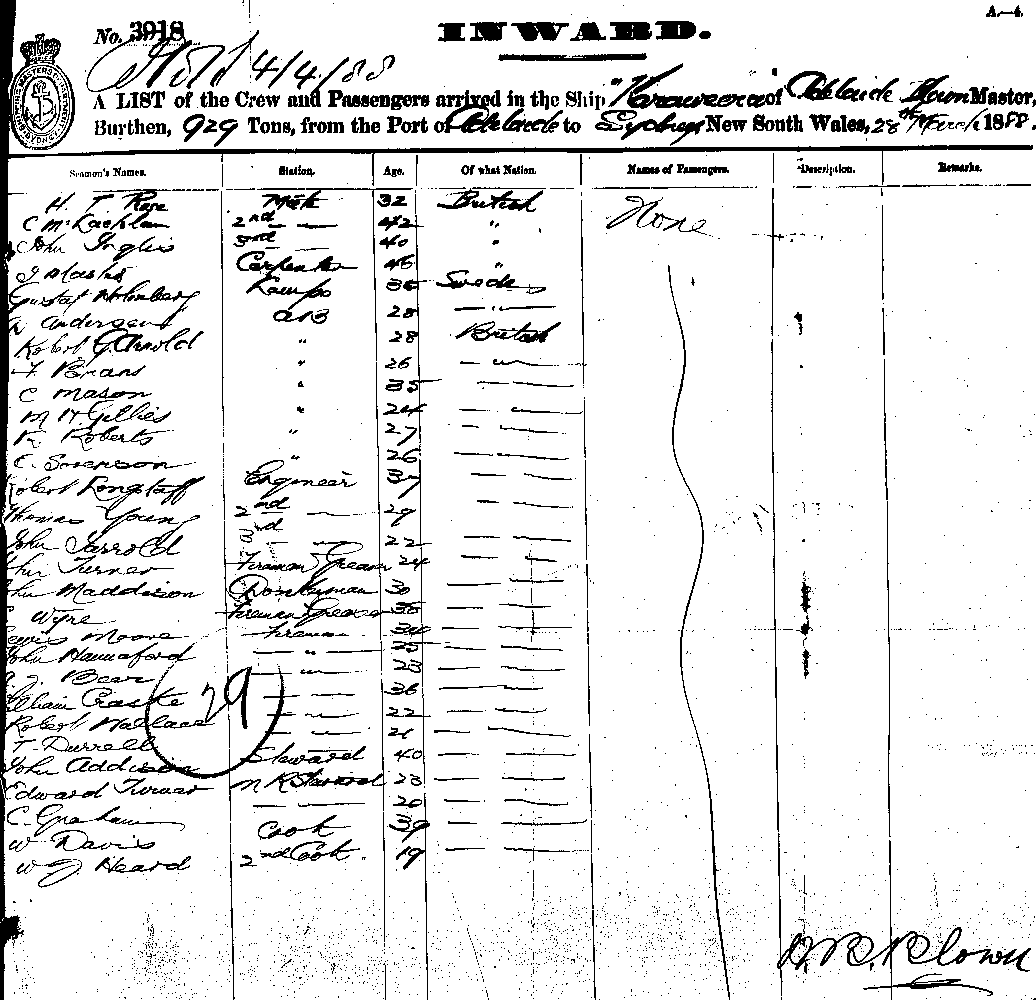 A.—4.
No. 3918
INWARD.
4/4/88
A LIST of the Crew and Passengers arrived in the Ship "Kraweera" of Adelaide Master,
Burthen, 929 Tons, from the Port of Adelaide to Sydney New South Wales, 28th March 1888.
Seamen's Names. Station. Age. Of what Nation. Names of Passengers. Description. Remarks.
H. T. Rose Mate 32 British None
C McLachlan 2nd — — 42 "
John Inglis 3rd — 40 "
Carpenter 46 "
Gustaf Holmberg Lamps 35 Swede
Andersen AB 28 — " —
Robert G Arnold " 28 British
Evans " 26 — " —
C Mason " 35 — —
M H Gillies " 24 — " —
R. Roberts " 27 — —
C. Sorenson " 26 — —
Robert Longstaff Engineer 37 — —
Thomas Young 2nd — 29 — —
John Jarrold 3rd — 22 — —
John Turner Fireman Greaser 24 — —
John Maddison Donkeyman 30 — —
Wyre Fireman Greaser 38 — —
Lewis Moore Fireman 34 — —
John Hannaford — " — 25 — —
Bear — " — 23 — —
William Craske — — 36 — —
Robert Wallace — — 22 — —
T. Durrell — — 21 — —
29
John Addison Steward 40 — —
Edward Turner 23 — —
C. Graham — — 20 — —
W Davis Cook 39 — —
W J. Heard 2nd Cook. 19 — —